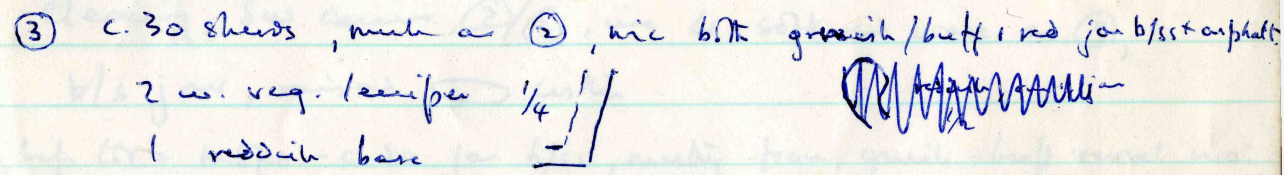 ③ c. 30 sherds, much as ②, inc both greenish/buff & red jar b/ss + asphalt
2 w. veg. temper 1/4
1 reddish base